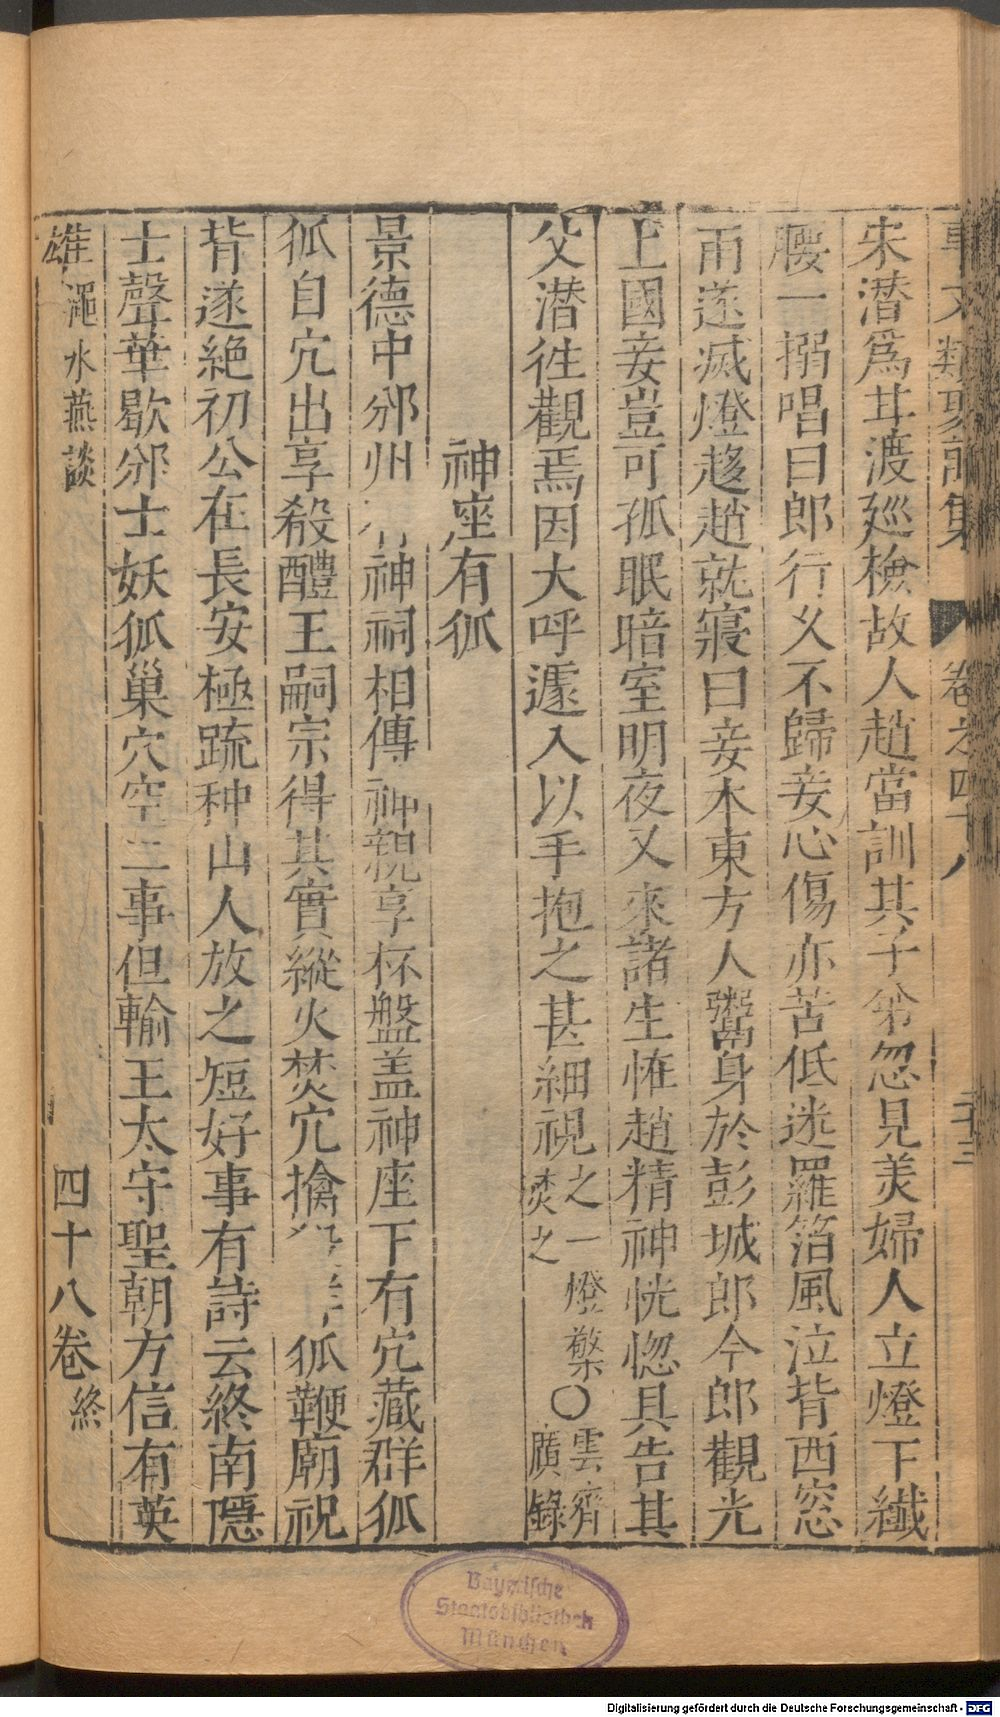 事文類聚前集 卷之四十八 二十三
宋潜為甘渡廵檢故人趙當訓其子弟忽見美婦人立燈下纖
腰一搦唱曰郎行久不歸妾心傷亦苦低迷羅箔風泣背西窓
雨遂滅燈趍趙就寢曰妾本東方人鬻身於彭城郎今郎觀光
上國妾豈可孤眠暗室明夜又來諸生恠趙精神恍惚具告其
父潜徃觀焉因大呼遽入以手抱之甚細視之一燈檠焚之〇雲齊廣錄
神座有狐
景德中邠州有神祠相傳神親享杯盤盖神座下有穴藏群狐
狐自穴出享殺醴王嗣宗得其實縱火焚穴擒 狐鞭廟祝
背遂絶初公在長安極䟽种山人放之短好事有詩云終南隱
士聲華歇邠士妖狐巢穴空二事但輸王太守聖朝方信有英
雄澠水燕談 四十八卷終
Bayerische
Staatsbibliothek
München
Digitalisierung gefördert durch die Deutsche Forschungsgemeinschaft - DFG